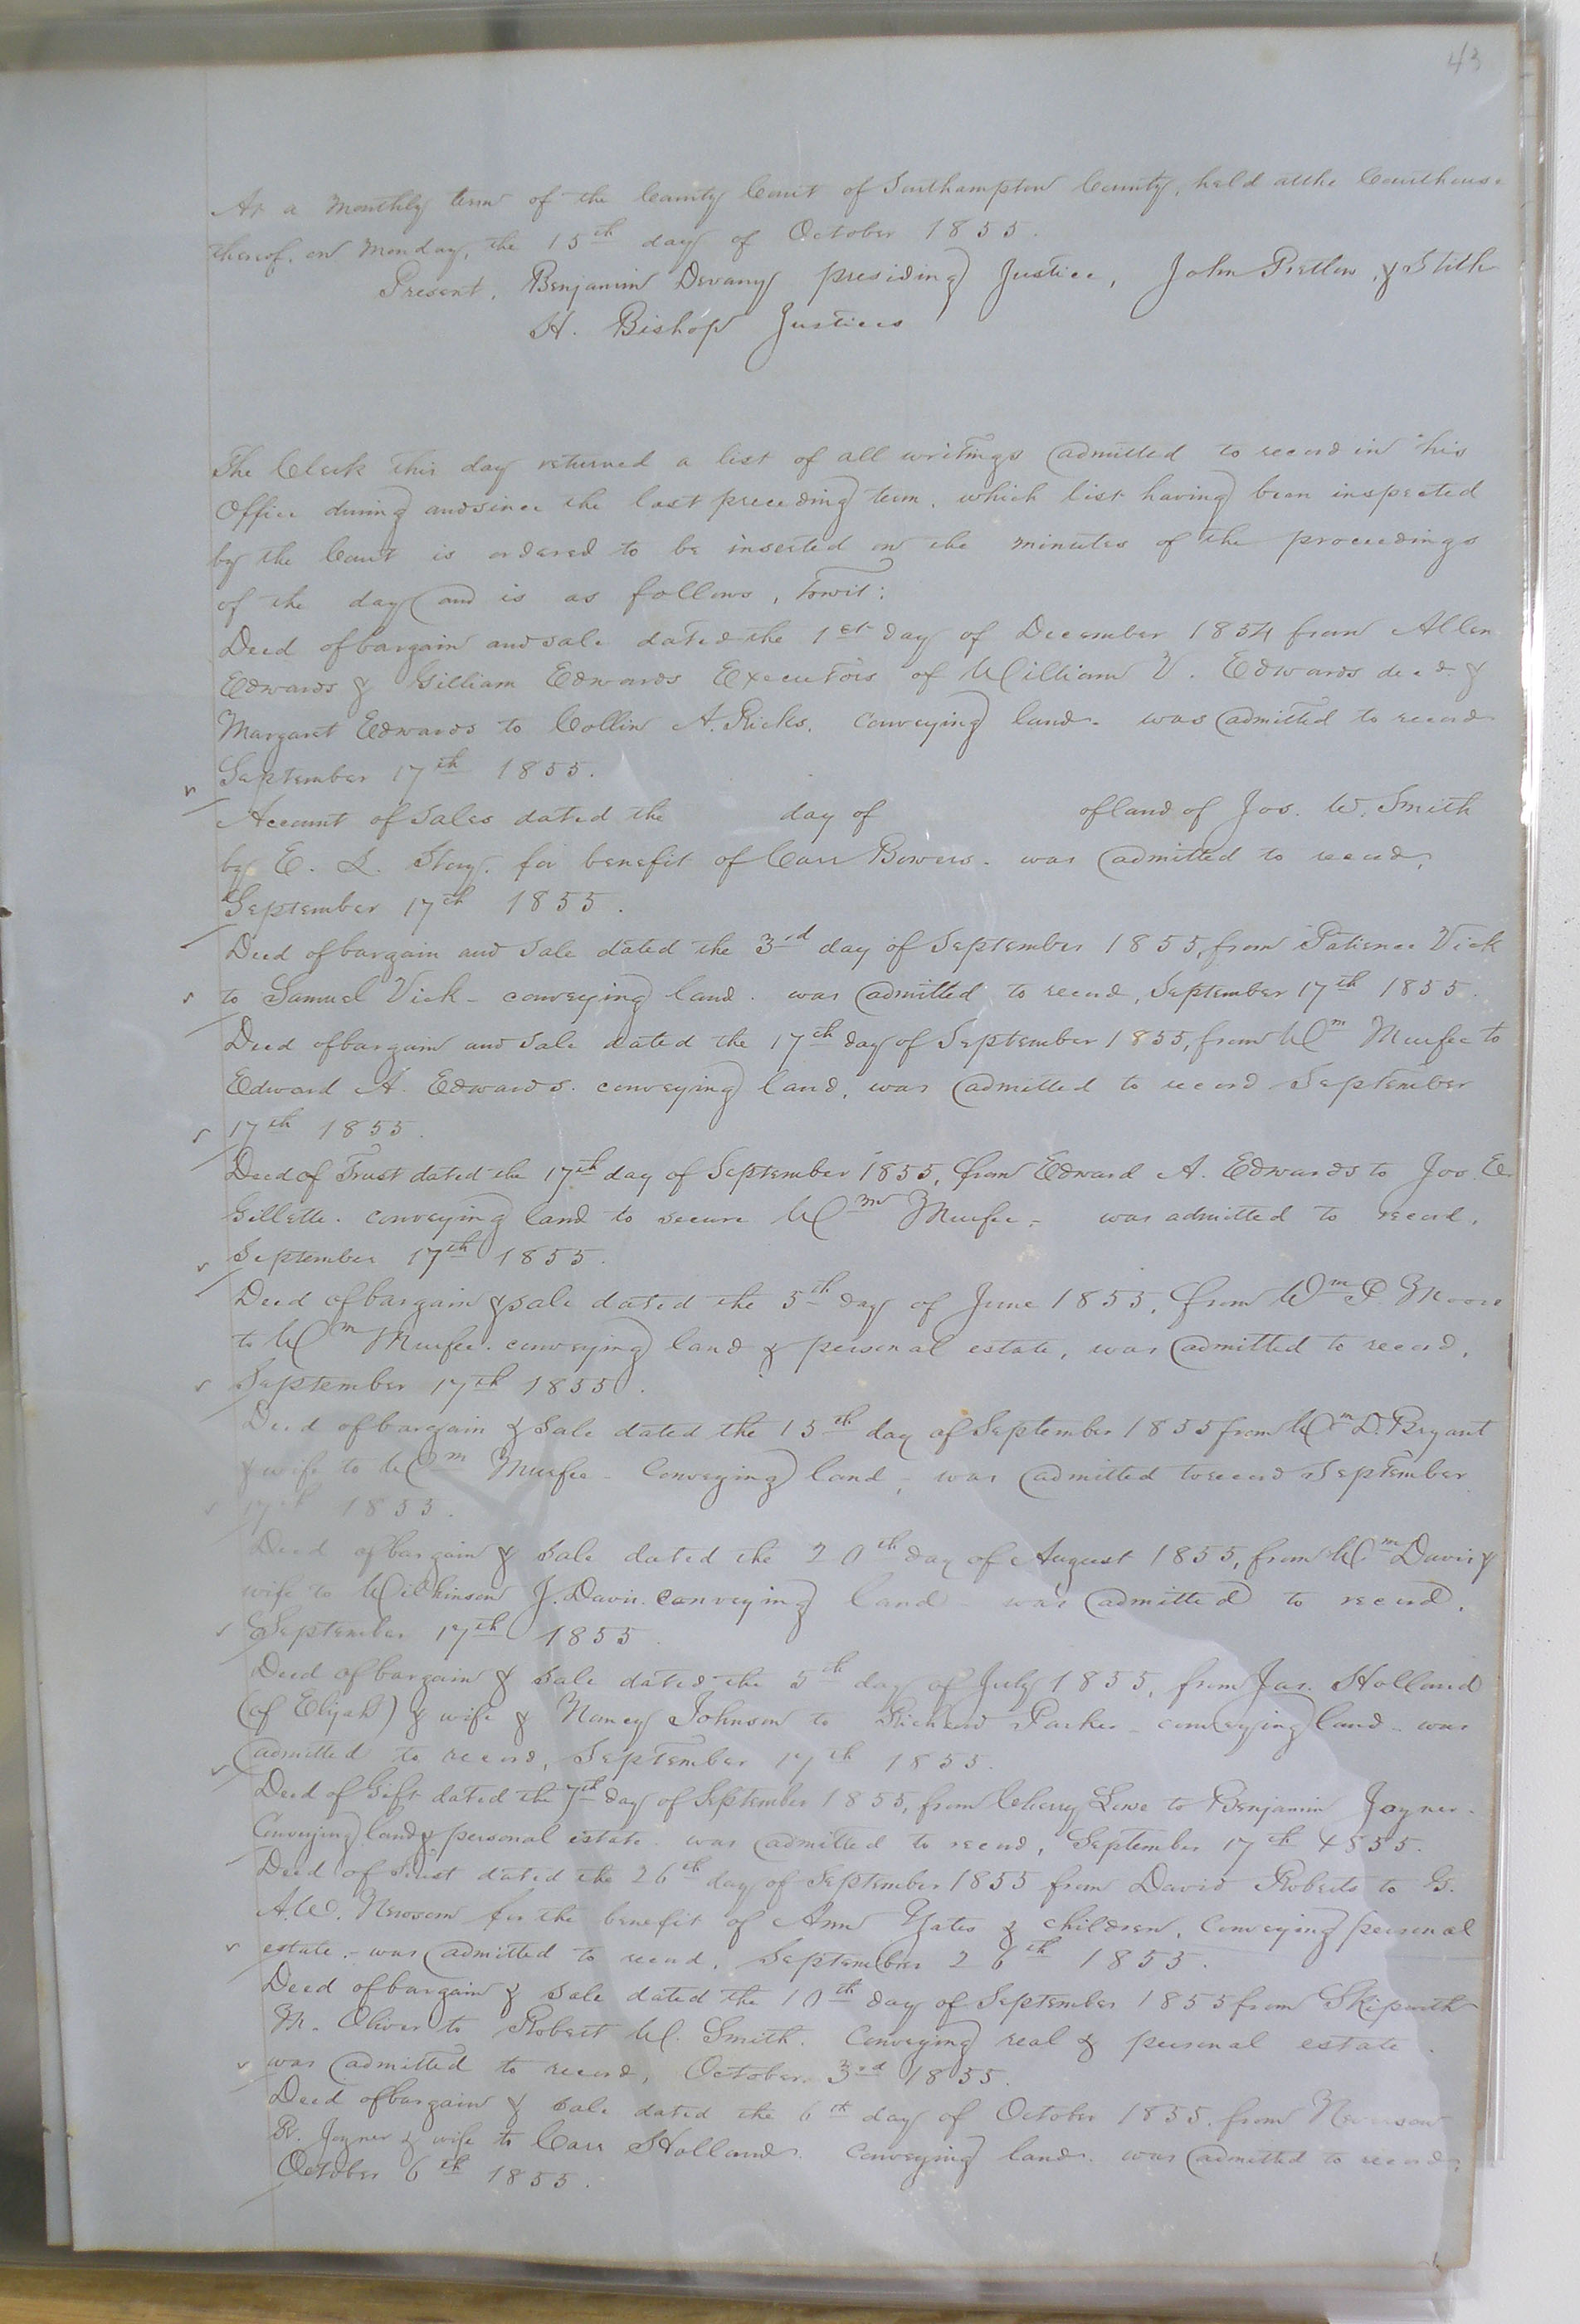 43
At a Monthly term of the County Court of Southampton County, held at the Courthouse
thereof, on Monday, the 15th day of October 1855.
Present, Benjamin Devany presiding Justice, John Pretlow, & Stith
H. Bishop Justices
The Clerk this day returned a list of all writings admitted to record in his
Office during and since the last preceeding term, which list having been inspected
by the Court is ordered to be inserted on the minutes of the proceedings
of the day and is as follows, Towit:
Deed of bargain and sale dated the 1st day of December 1854 from Allen
Edwards & Gilliam Edwards Executors of William V. Edwards decd. &
Margaret Edwards to Collin A. Ricks, conveying land. was admitted to record
September 17th 1855.
Account of Sales dated the day of of land of Jos. W. Smith
by E. L. Story. for benefit of Carr Bowers. was admitted to record,
September 17th 1855.
Deed of bargain and sale dated the 3rd day of September 1855, from Patience Vick
to Samuel Vick - conveying land. was admitted to record, September 17th 1855.
Deed of bargain and sale dated the 17th day of September 1855, from Wm Murfee to
Edward A. Edwards. conveying land, was admitted to record September
17th 1855.
Deed of Trust dated the 17th day of September 1855, from Edward A. Edwards to Jos. E.
Gillette. conveying land to secure Wm Murfee - was admitted to record,
September 17th 1855.
Deed of bargain & sale dated the 5th day of June 1855, from Wm P. Moore
to Wm Murfee. conveying land & personal estate, was admitted to record,
September 17th 1855.
Deed of bargain & Sale dated the 15th day of September 1855 from Wm D. Bryant
& wife to Wm Murfee - Conveying land, was admitted to record September
17th 1855.
Deed of bargain & sale dated the 20th day of August 1855, from Wm Davis &
wife to Wilkinson J. Davis. conveying land - was admitted to record,
September 17th 1855.
Deed of bargain & sale dated the 5th day of July 1855, from Jas. Holland
(of Elijah) & wife & Nancy Johnson to Richard Parker - conveying land - was
admitted to record, September 17th 1855.
Deed of Gift dated the 7th day of September 1855, from Cherry Lowe to Benjamin Joyner.
Conveying land & personal estate. was admitted to record, September 17th 1855.
Deed of Trust dated the 26th day of September 1855 from David Roberts to G.
A.W. Newsom for the benefit of Ann Yates & children, Conveying personal
estate. - was admitted to record, September 26th 1855.
Deed of bargain & sale dated the 10th day of September 1855 from Skipwith
M. Oliver to Robert W. Smith. Conveying real & personal estate.
was admitted to record, October 3rd 1855.
Deed of bargain & sale dated the 6th day of October 1855. from
R. Joyner & wife to Carr Holland. Conveying land. was admitted to record,
October 6th 1855.